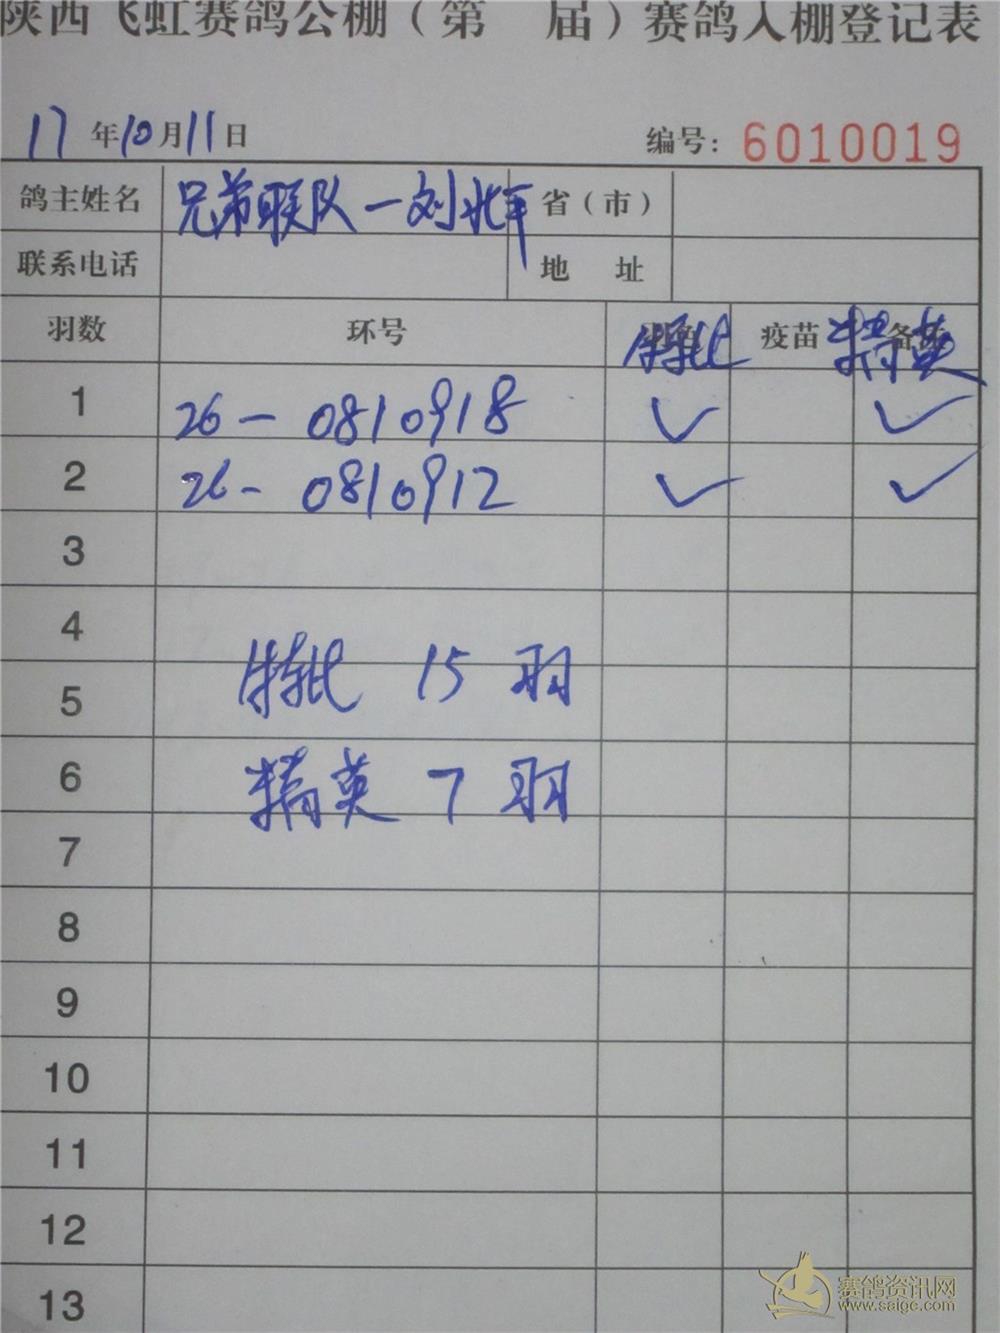 陕西飞虹赛鸽公棚（第 届）赛鸽入棚登记表
17年10月11日 编号：6010019
鸽主姓名 兄弟联队一刘北平 省（市）
联系电话 地 址
羽数 环号 特批 疫苗 精英
1 26-0810918 ✓ ✓
2 26-0810912 ✓ ✓
3
4
特批 15 羽
5
6
精英 7 羽
7
8
9
10
11
12
13
赛鸽资讯网
www.saigc.com